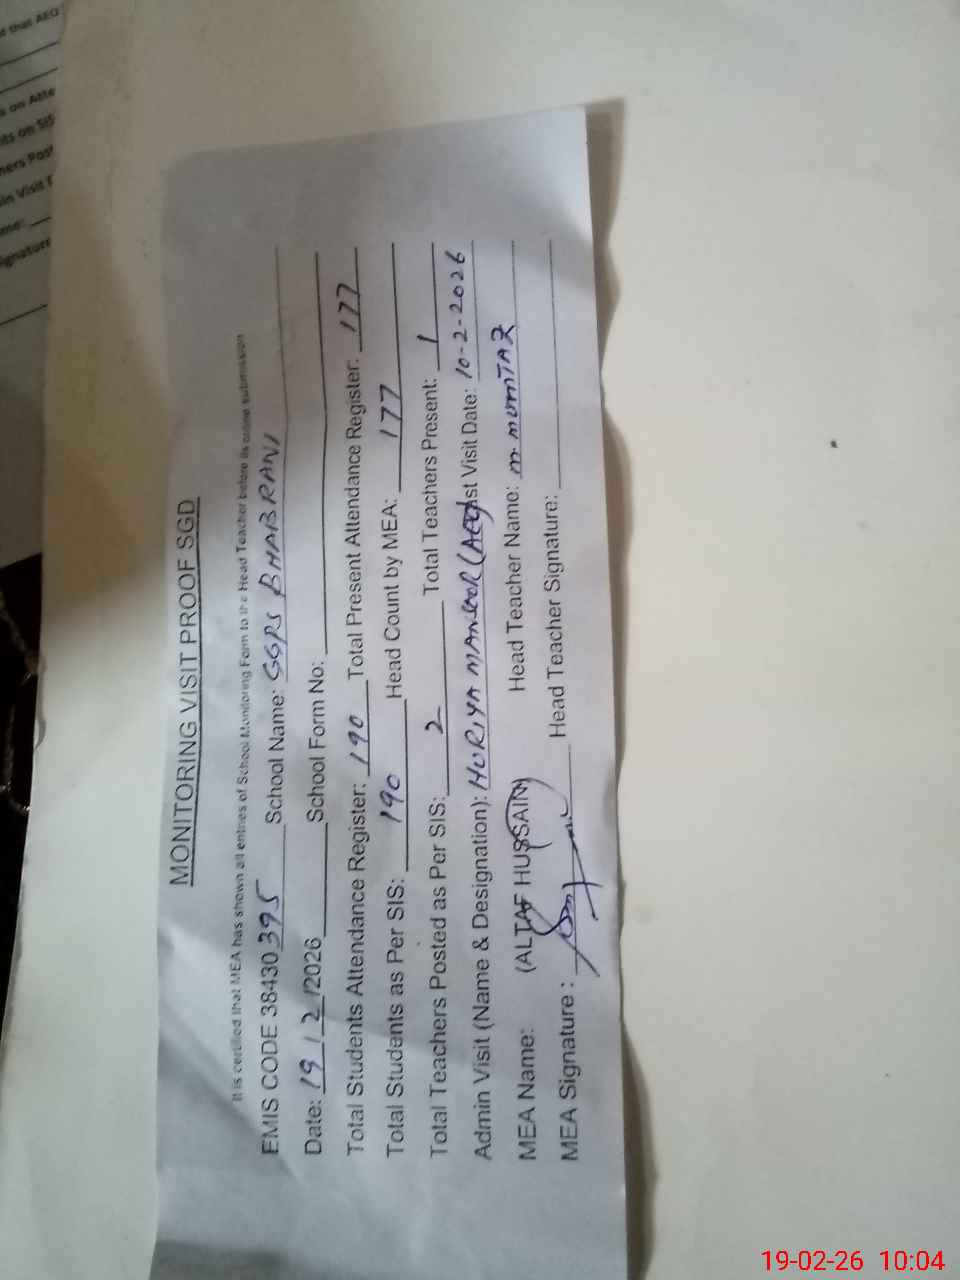 MONITORING VISIT PROOF SGD
It is certified that MEA has shown all entries of School Monitoring Form to the Head Teacher before its online submission
EMIS CODE 38430395 School Name: GGPS BHABRANI
Date: 19/2/2026 School Form No:
Total Students Attendance Register: 190 Total Present Attendance Register: 177
Total Students as Per SIS: 190 Head Count by MEA: 177
Total Teachers Posted as Per SIS: 2 Total Teachers Present: 1
Admin Visit (Name & Designation): HURIYA MANSOOR (AEO) Last Visit Date: 10-2-2026
MEA Name: (ALTAF HUSSAIN) Head Teacher Name: M MUMTAZ
MEA Signature: Head Teacher Signature:
that AEO
on Atte
its on SIS
hers Post
in Visit
me:
ignature
19-02-26 10:04